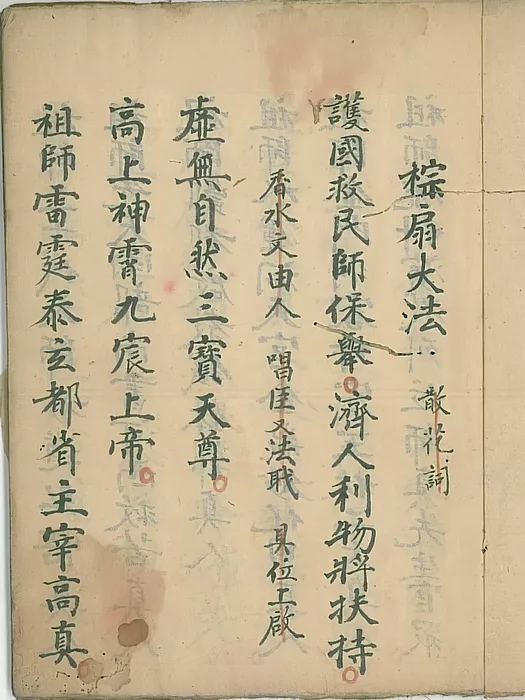 棕扇大法 散花詞
護國救民師保舉。濟人利物將扶持。
香水文由人 唱臣又法職 具位上啟
虛無自然三寶天尊。
高上神霄九宸上帝。
祖師雷霆泰玄都省主宰高真。